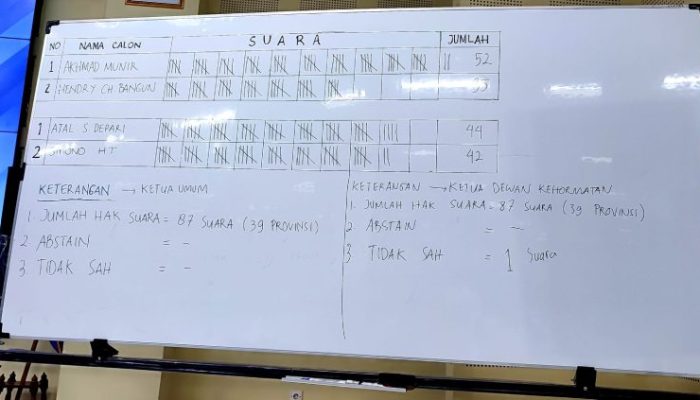 NO NAMA CALON SUARA JUMLAH
1 AKHMAD MUNIR 52
2 HENDRY CH BANGUN 35
1 ATAL S DEPARI 44
2 HT 42
KETERANGAN → KETUA UMUM
1. JUMLAH HAK SUARA = 87 SUARA (39 PROVINSI)
2. ABSTAIN = -
3. TIDAK SAH = -
KETERANGAN → KETUA DEWAN KEHORMATAN
1. JUMLAH HAK SUARA = 87 SUARA (39 PROVINSI)
2 ABSTAIN = -
3 TIDAK SAH = 1 Suara